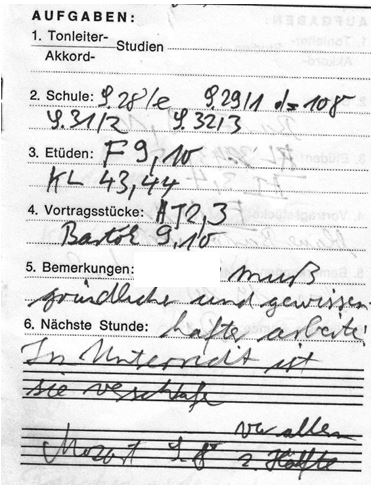 AUFGABEN:
1. Tonleiter- Studien
Akkord-
2. Schule: S. 28/e S. 29/1 d = 108
S. 31/2 S. 32/3
3. Etüden: F 9, 10
KL 43, 44
4. Vortragsstücke: HT 2, 3
Bartók 9, 10
5. Bemerkungen: muß
gründlicher und gewissen-
6. Nächste Stunde: hafter arbeiten
Im Unterricht ist
sie verschlafe
vor allem
Mozart S. 8 2. Hälfte